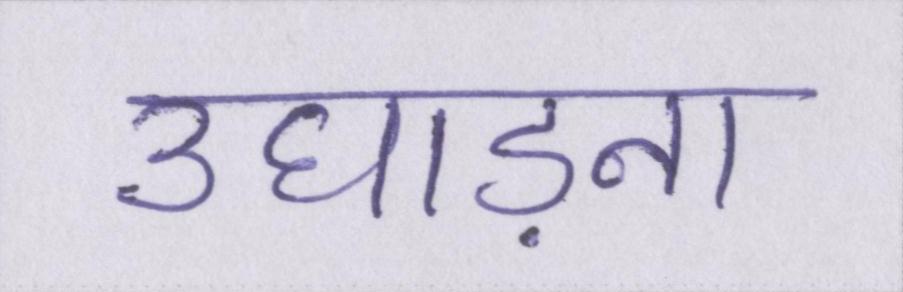 उघाड़ना